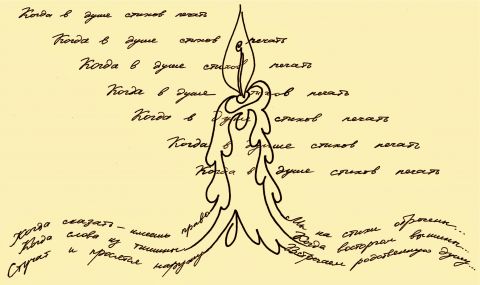 Когда в душе стихов печать
Когда в душе стихов печать
Когда в душе стихов печать
Когда в душе стихов печать
Когда в душе стихов печать
Когда в душе стихов печать
Когда в душе стихов печать
Когда сказать - имеешь право
Когда слова из тишины
Стучат и просятся наружу
Мы на стихи обречены...
Когда восторгом
Встречаем родственную душу...